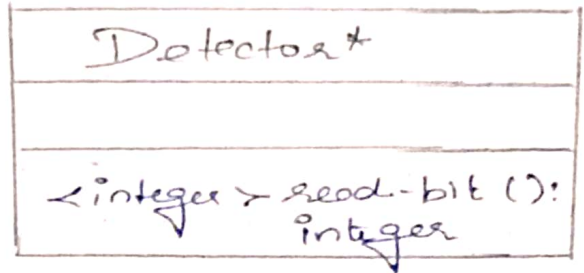 Detector*
<integer> read-bit ():
integer